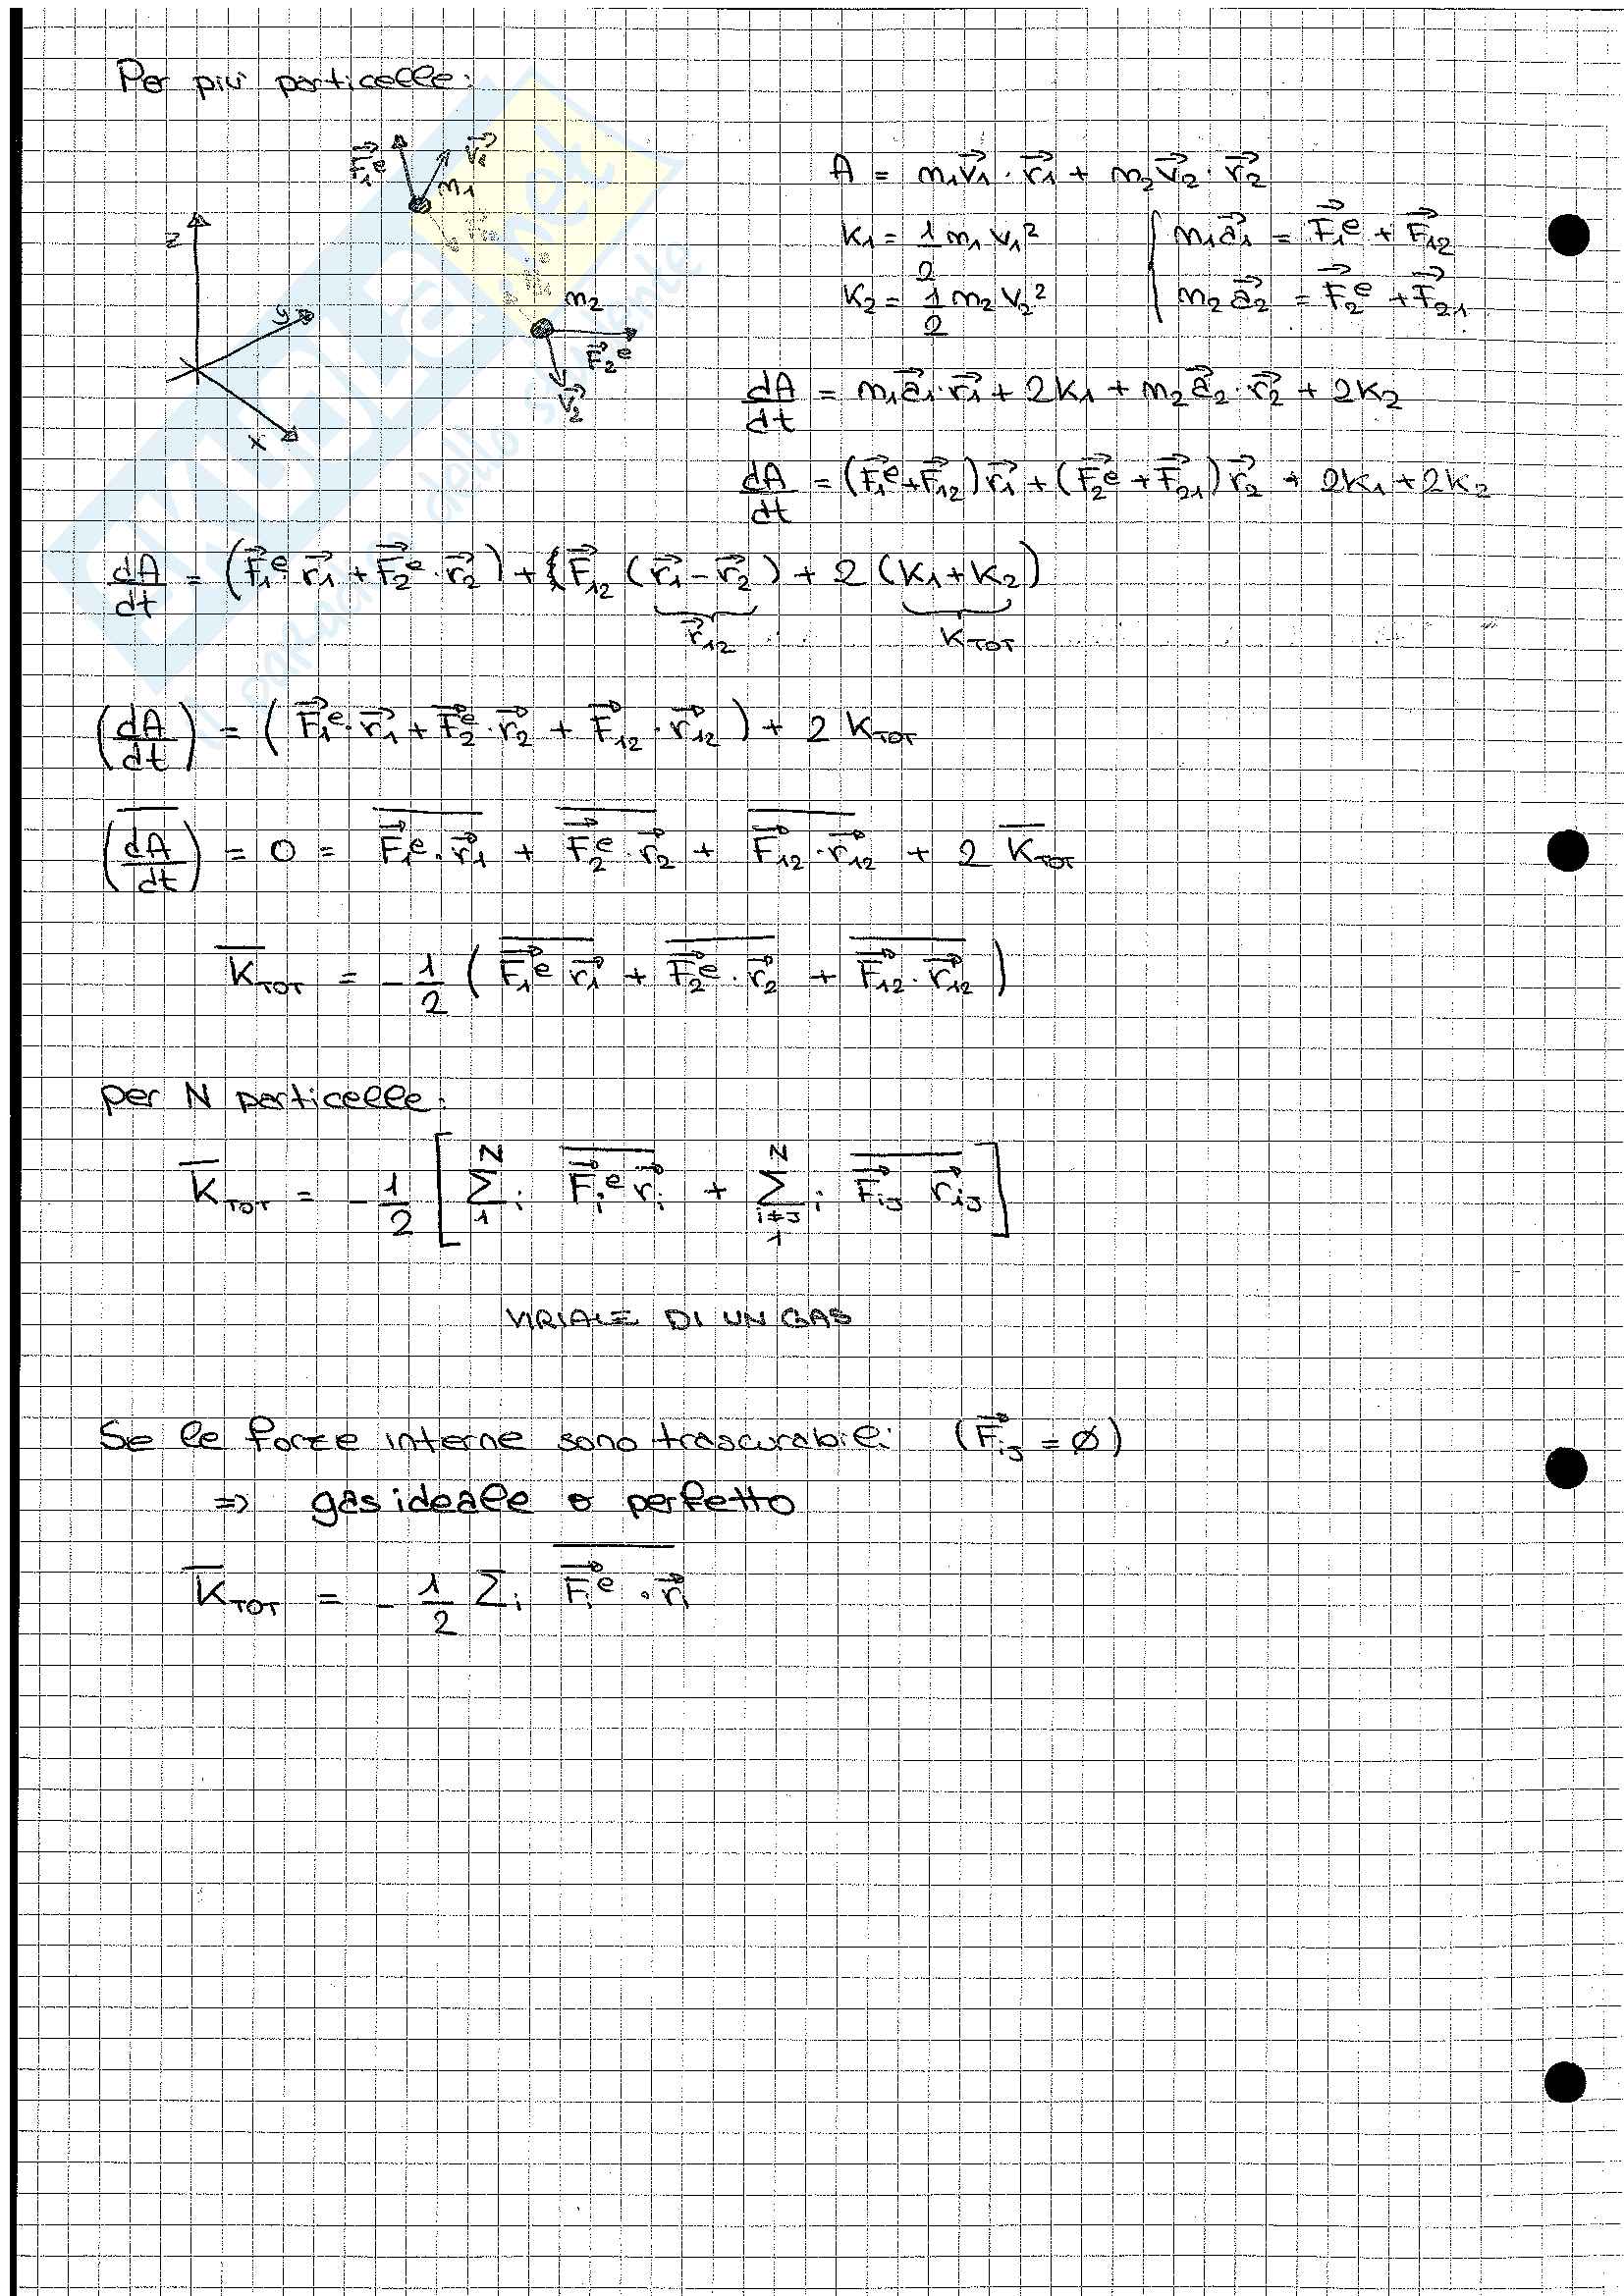 Per più particelle:
F⃗₁ᵉ v⃗₁ m₁
z y x
m₂ F⃗₂ᵉ v⃗₂
A = m₁v⃗₁ · r⃗₁ + m₂v⃗₂ · r⃗₂
K₁ = 1/2 m₁ v₁² { m₁a⃗₁ = F⃗₁ᵉ + F⃗₁₂
K₂ = 1/2 m₂ v₂² { m₂a⃗₂ = F⃗₂ᵉ + F⃗₂₁
dA/dt = m₁a⃗₁·r⃗₁ + 2K₁ + m₂a⃗₂·r⃗₂ + 2K₂
dA/dt = (F⃗₁ᵉ + F⃗₁₂) r⃗₁ + (F⃗₂ᵉ + F⃗₂₁) r⃗₂ + 2K₁ + 2K₂
dA/dt = (F⃗₁ᵉ · r⃗₁ + F⃗₂ᵉ · r⃗₂) + (F⃗₁₂ (r⃗₁ - r⃗₂) + 2 (K₁ + K₂)
r⃗₁₂ K_TOT
(dA/dt) = (F⃗₁ᵉ · r⃗₁ + F⃗₂ᵉ · r⃗₂ + F⃗₁₂ · r⃗₁₂) + 2 K_TOT
(d̅A̅/dt) = 0 = \overline{F⃗₁ᵉ · r⃗₁} + \overline{F⃗₂ᵉ · r⃗₂} + \overline{F⃗₁₂ · r⃗₁₂} + 2 \overline{K}_TOT
\overline{K}_TOT = - 1/2 ( \overline{F⃗₁ᵉ r⃗₁} + \overline{F⃗₂ᵉ · r⃗₂} + \overline{F⃗₁₂ · r⃗₁₂} )
per N particelle:
\overline{K}_TOT = - 1/2 [ Σ₁ᴺ i \overline{F⃗ᵢᵉ r⃗ᵢ} + Σ_{i≠j 1}ᴺ i \overline{F⃗ᵢⱼ r⃗ᵢⱼ} ]
VIRIALE DI UN GAS
Se le forze interne sono trascurabili (F⃗ᵢⱼ = ∅)
⇒ gas ideale o perfetto
\overline{K}_TOT = - 1/2 Σᵢ \overline{F⃗ᵢᵉ · r⃗ᵢ}